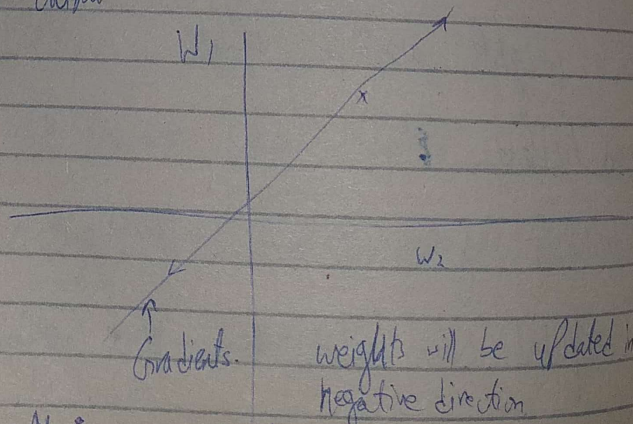 W1
x
W2
Gradients.
weights will be updated in
negative direction